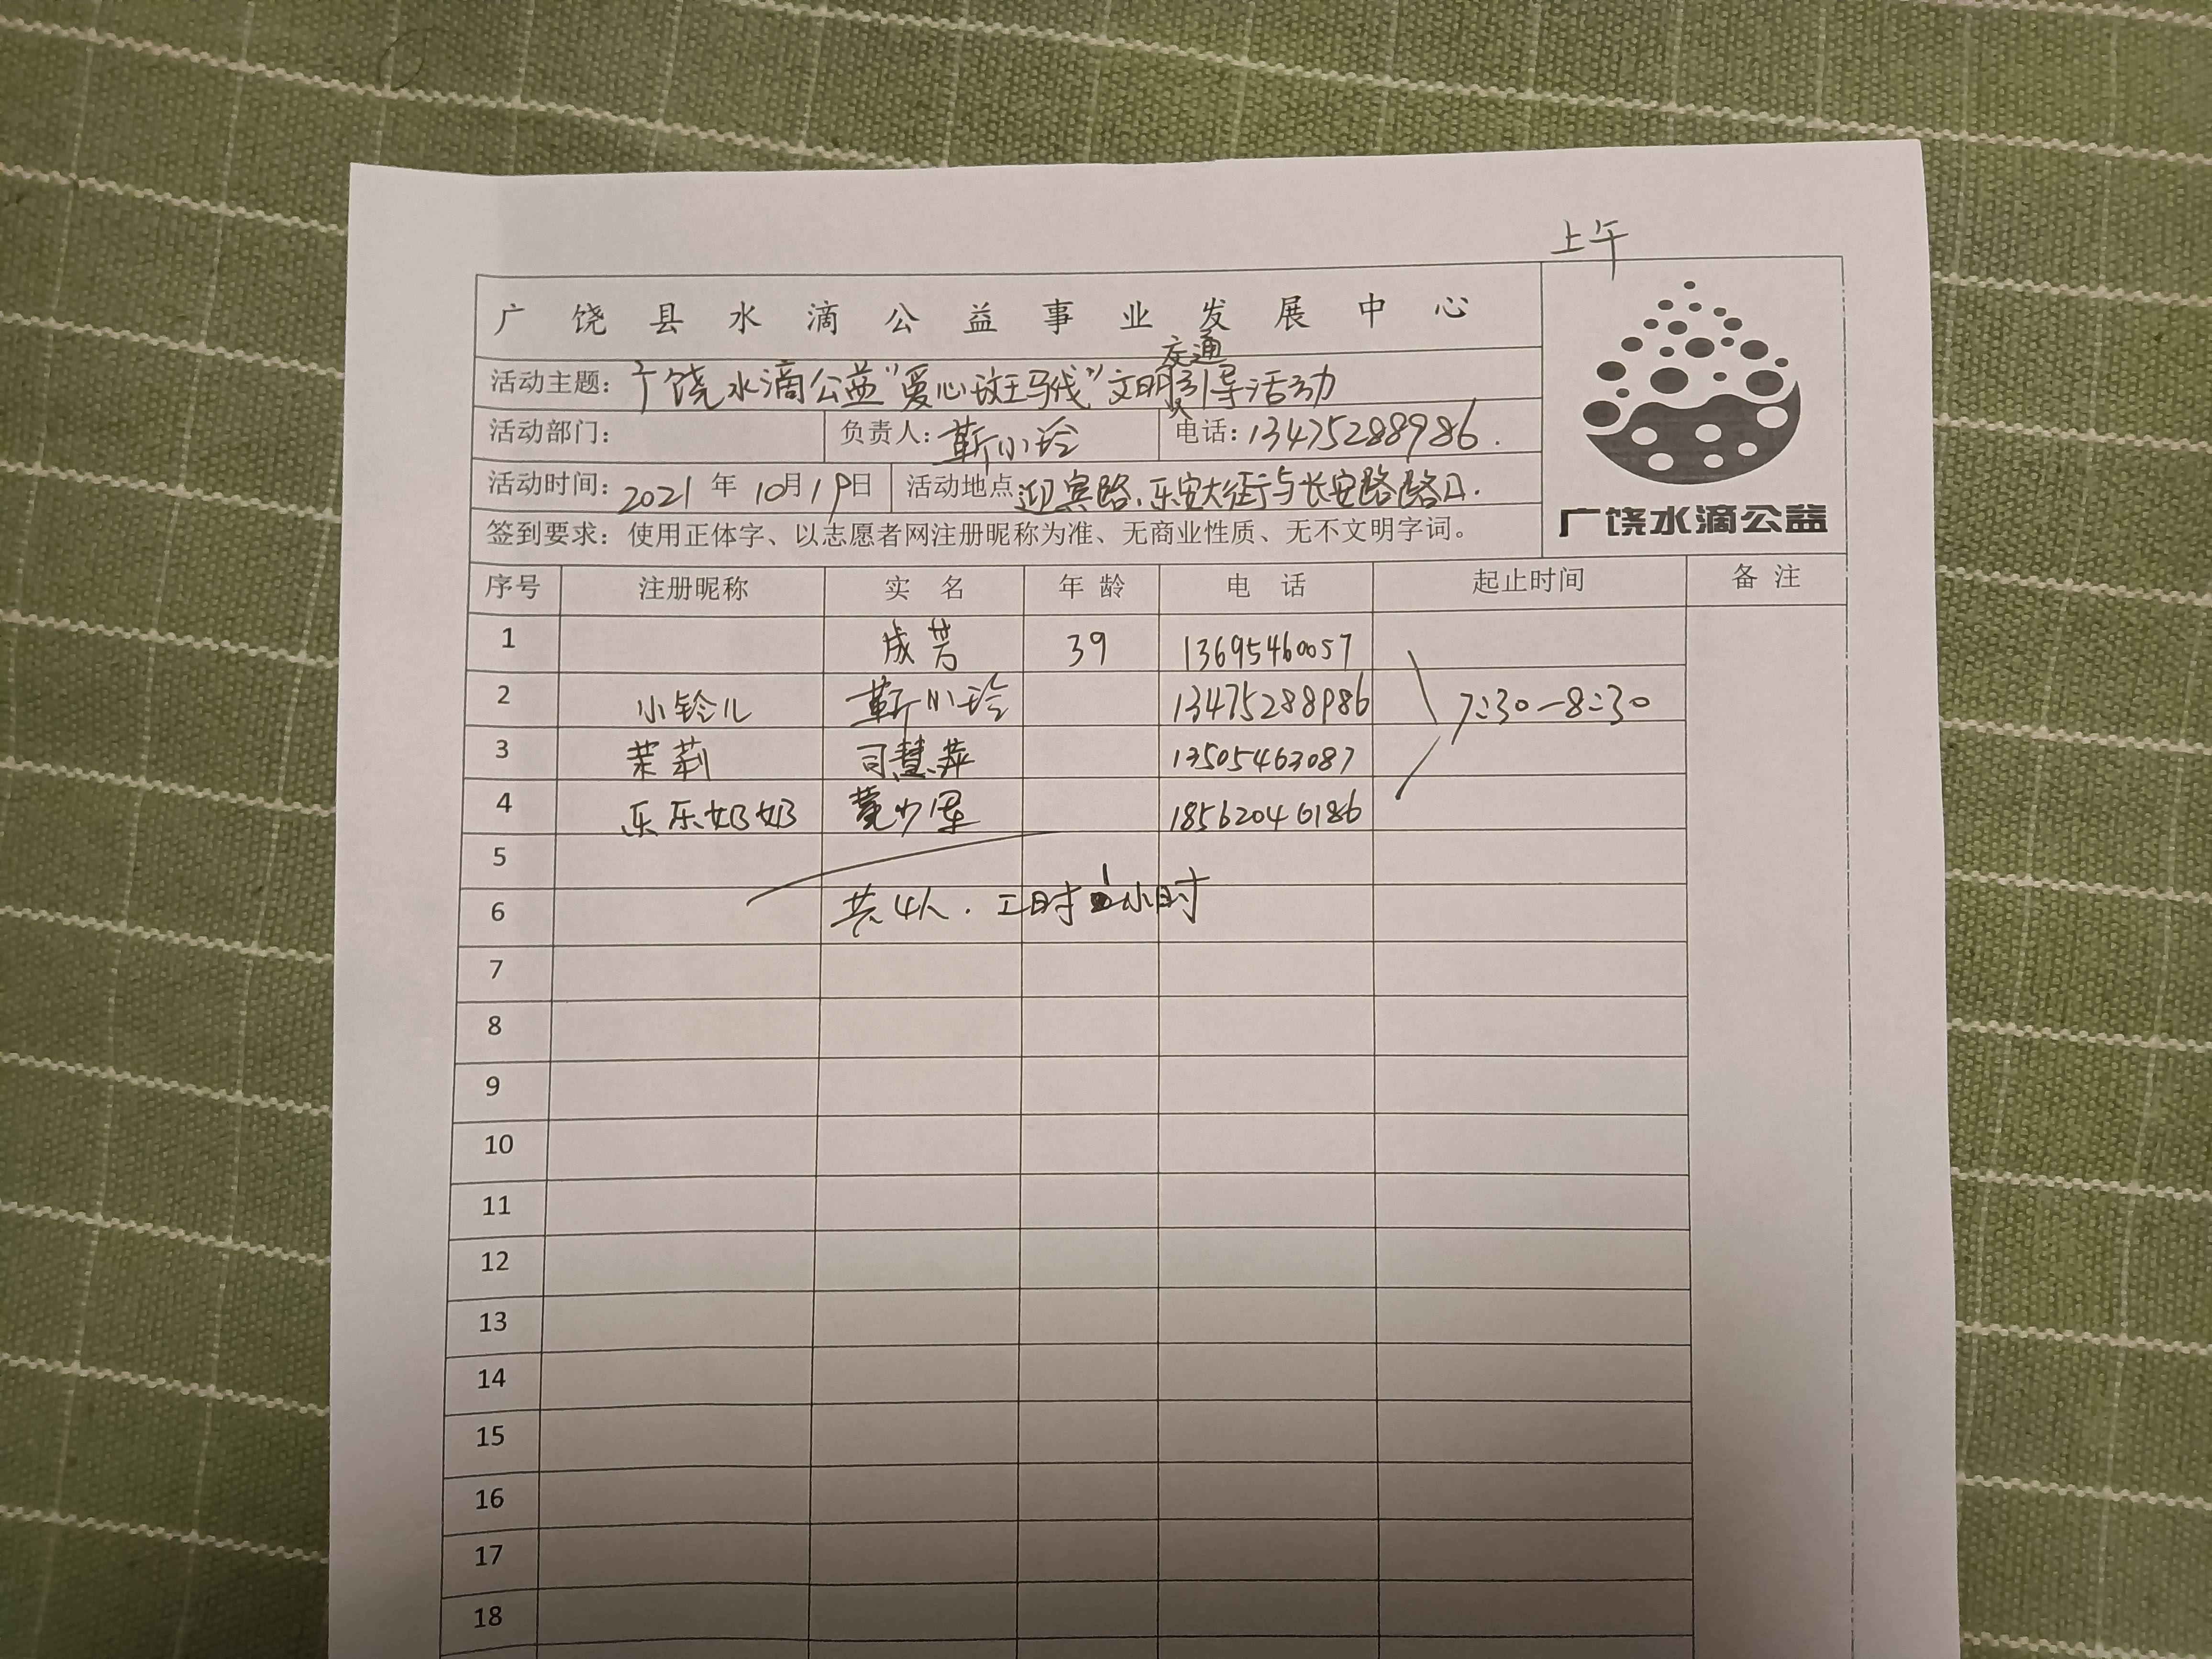 上午
广饶县水滴公益事业发展中心
交通
活动主题：广饶水滴公益"爱心斑马线"文明引导活动
活动部门： 负责人：靳小玲 电话：13475288986.
活动时间：2021年10月19日 活动地点 迎宾路、乐安大街与长安路路口.
签到要求：使用正体字、以志愿者网注册昵称为准、无商业性质、无不文明字词。
广饶水滴公益
序号 注册昵称 实名 年龄 电话 起止时间 备注
1 成芳 39 13695460057
2 小铃儿 靳小玲 13475288986 7:30-8:30
3 茉莉 司慧萍 13505463087
4 乐乐奶奶 18562046186
5
6 共4人. 工时1小时
7
8
9
10
11
12
13
14
15
16
17
18